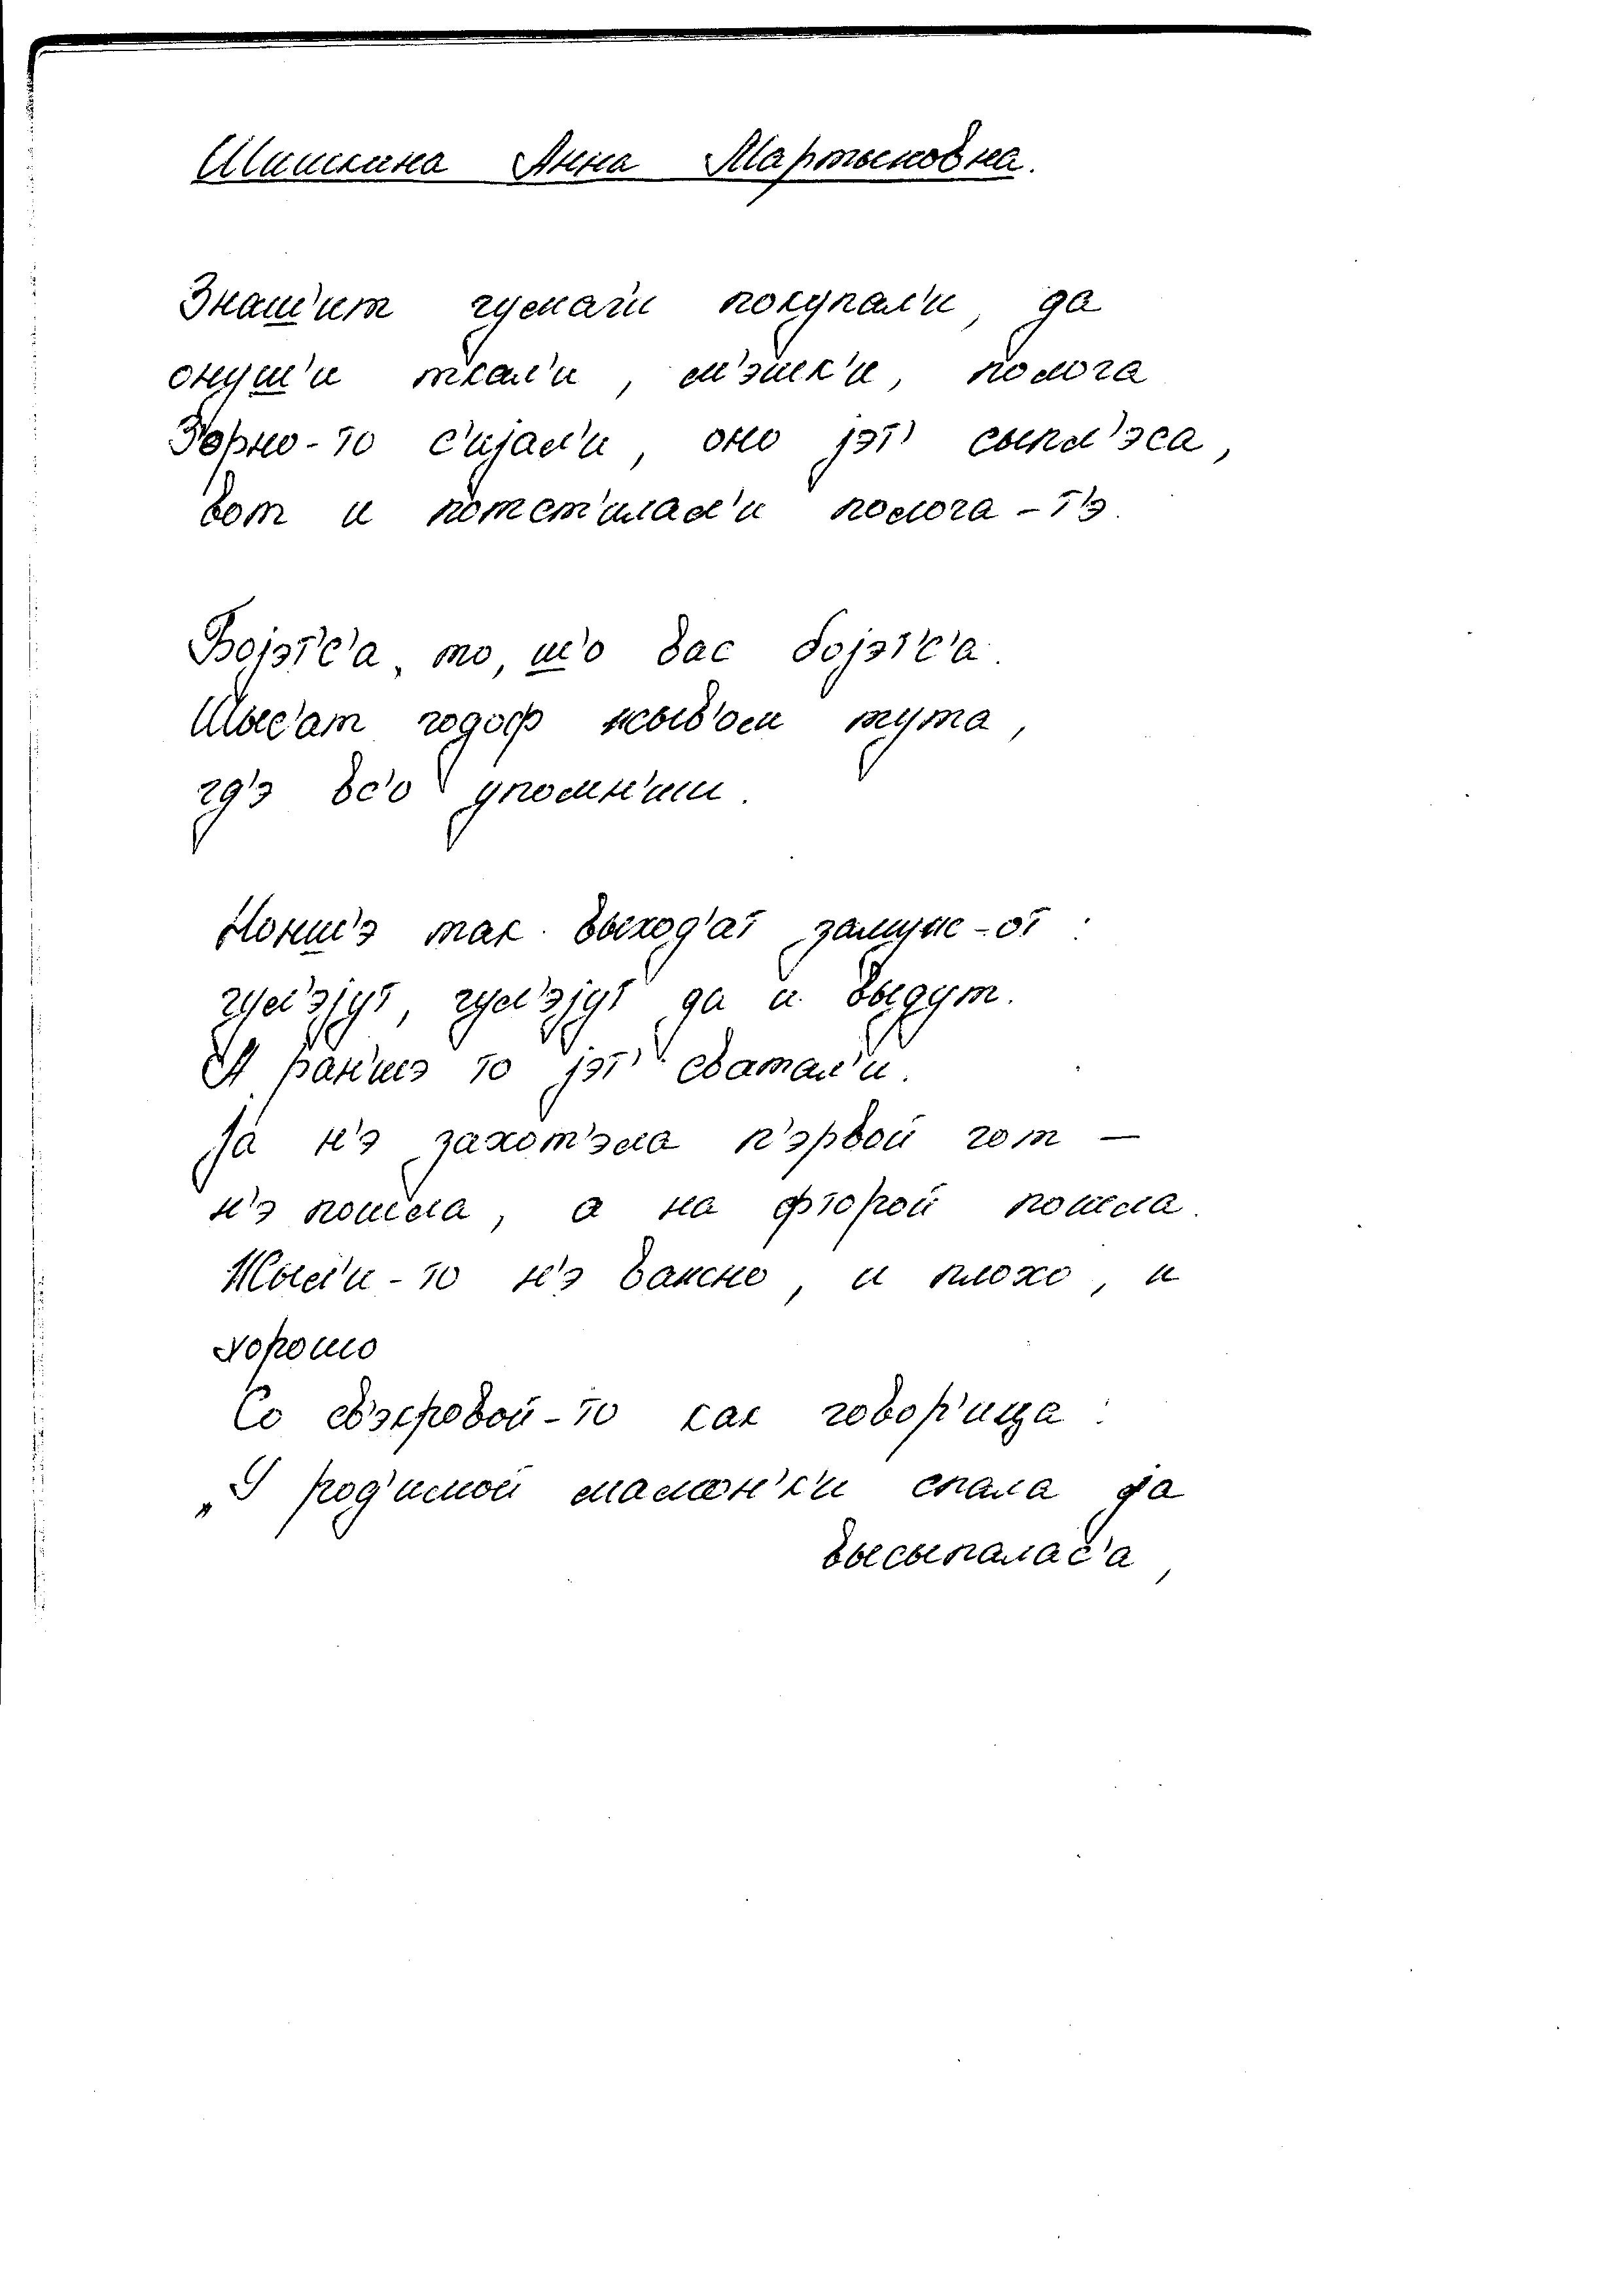 Шишкина Анна Мартыновна.
Знаш'ит гумаги покупал'и, да
онуш'и ткал'и, м'эшк'и, полога
Зорно-то с'ијал'и, оно јэт' сыпл'эса,
вот и потст'илал'и полога-т'э.
Бојэтс'а, то, ш'о вас бојэтс'а.
Шыс'ат годоф жыв'ом тута,
гд'э вс'о упомн'иш.
Нонш'э так выход'ат замуж-от:
гул'эјут, гул'эјут да и выдут.
А ран'шэ то јэт' сватал'и.
Ја н'э захот'эла п'эрвой гот —
н'э пошла, а на фторой пошла.
Жыл'и-то н'э важно, и плохо, и
хорошо
Со св'экровой-то как говор'ица:
„У род'имой мамон'к'и спала да
высыпалас'а,